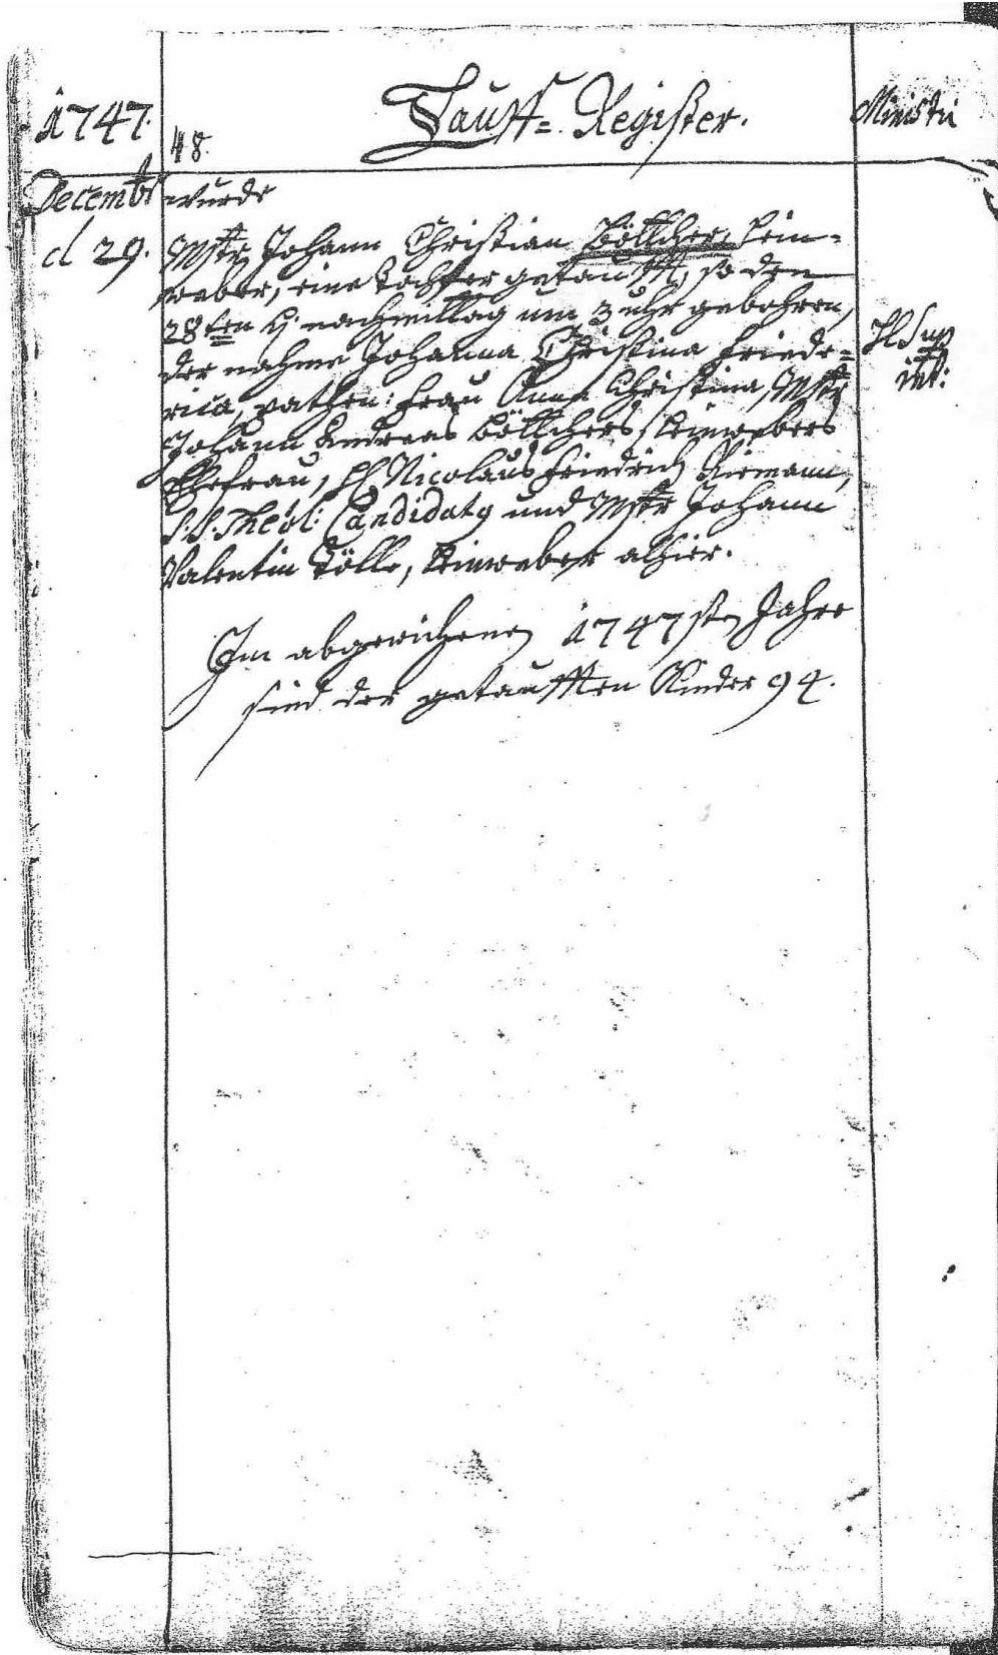 1747.
48.
Tauff= Register.
Ministri
Decembr
wurde
d 29.
Mstr Johann Christian Böttcher, Lein-
weber, eine Tochter getaufft, so den
28ten h. nachmittag um 3 uhr gebohren,
der nahme Johanna Christina Friede=
rica, pathen: Frau Anna Christina, Mstr
Johann Andreas Böttchers, Leinwebers
Ehefrau, H Nicolaus Friedrich Riemann,
S.S. Theol: Candidatg und Mstr Johann
Valentin Tölle, Leinweber alhier.
H Sup
int:
Im abgewichenen 1747sten Jahre
sind der getaufften Kinder 94.